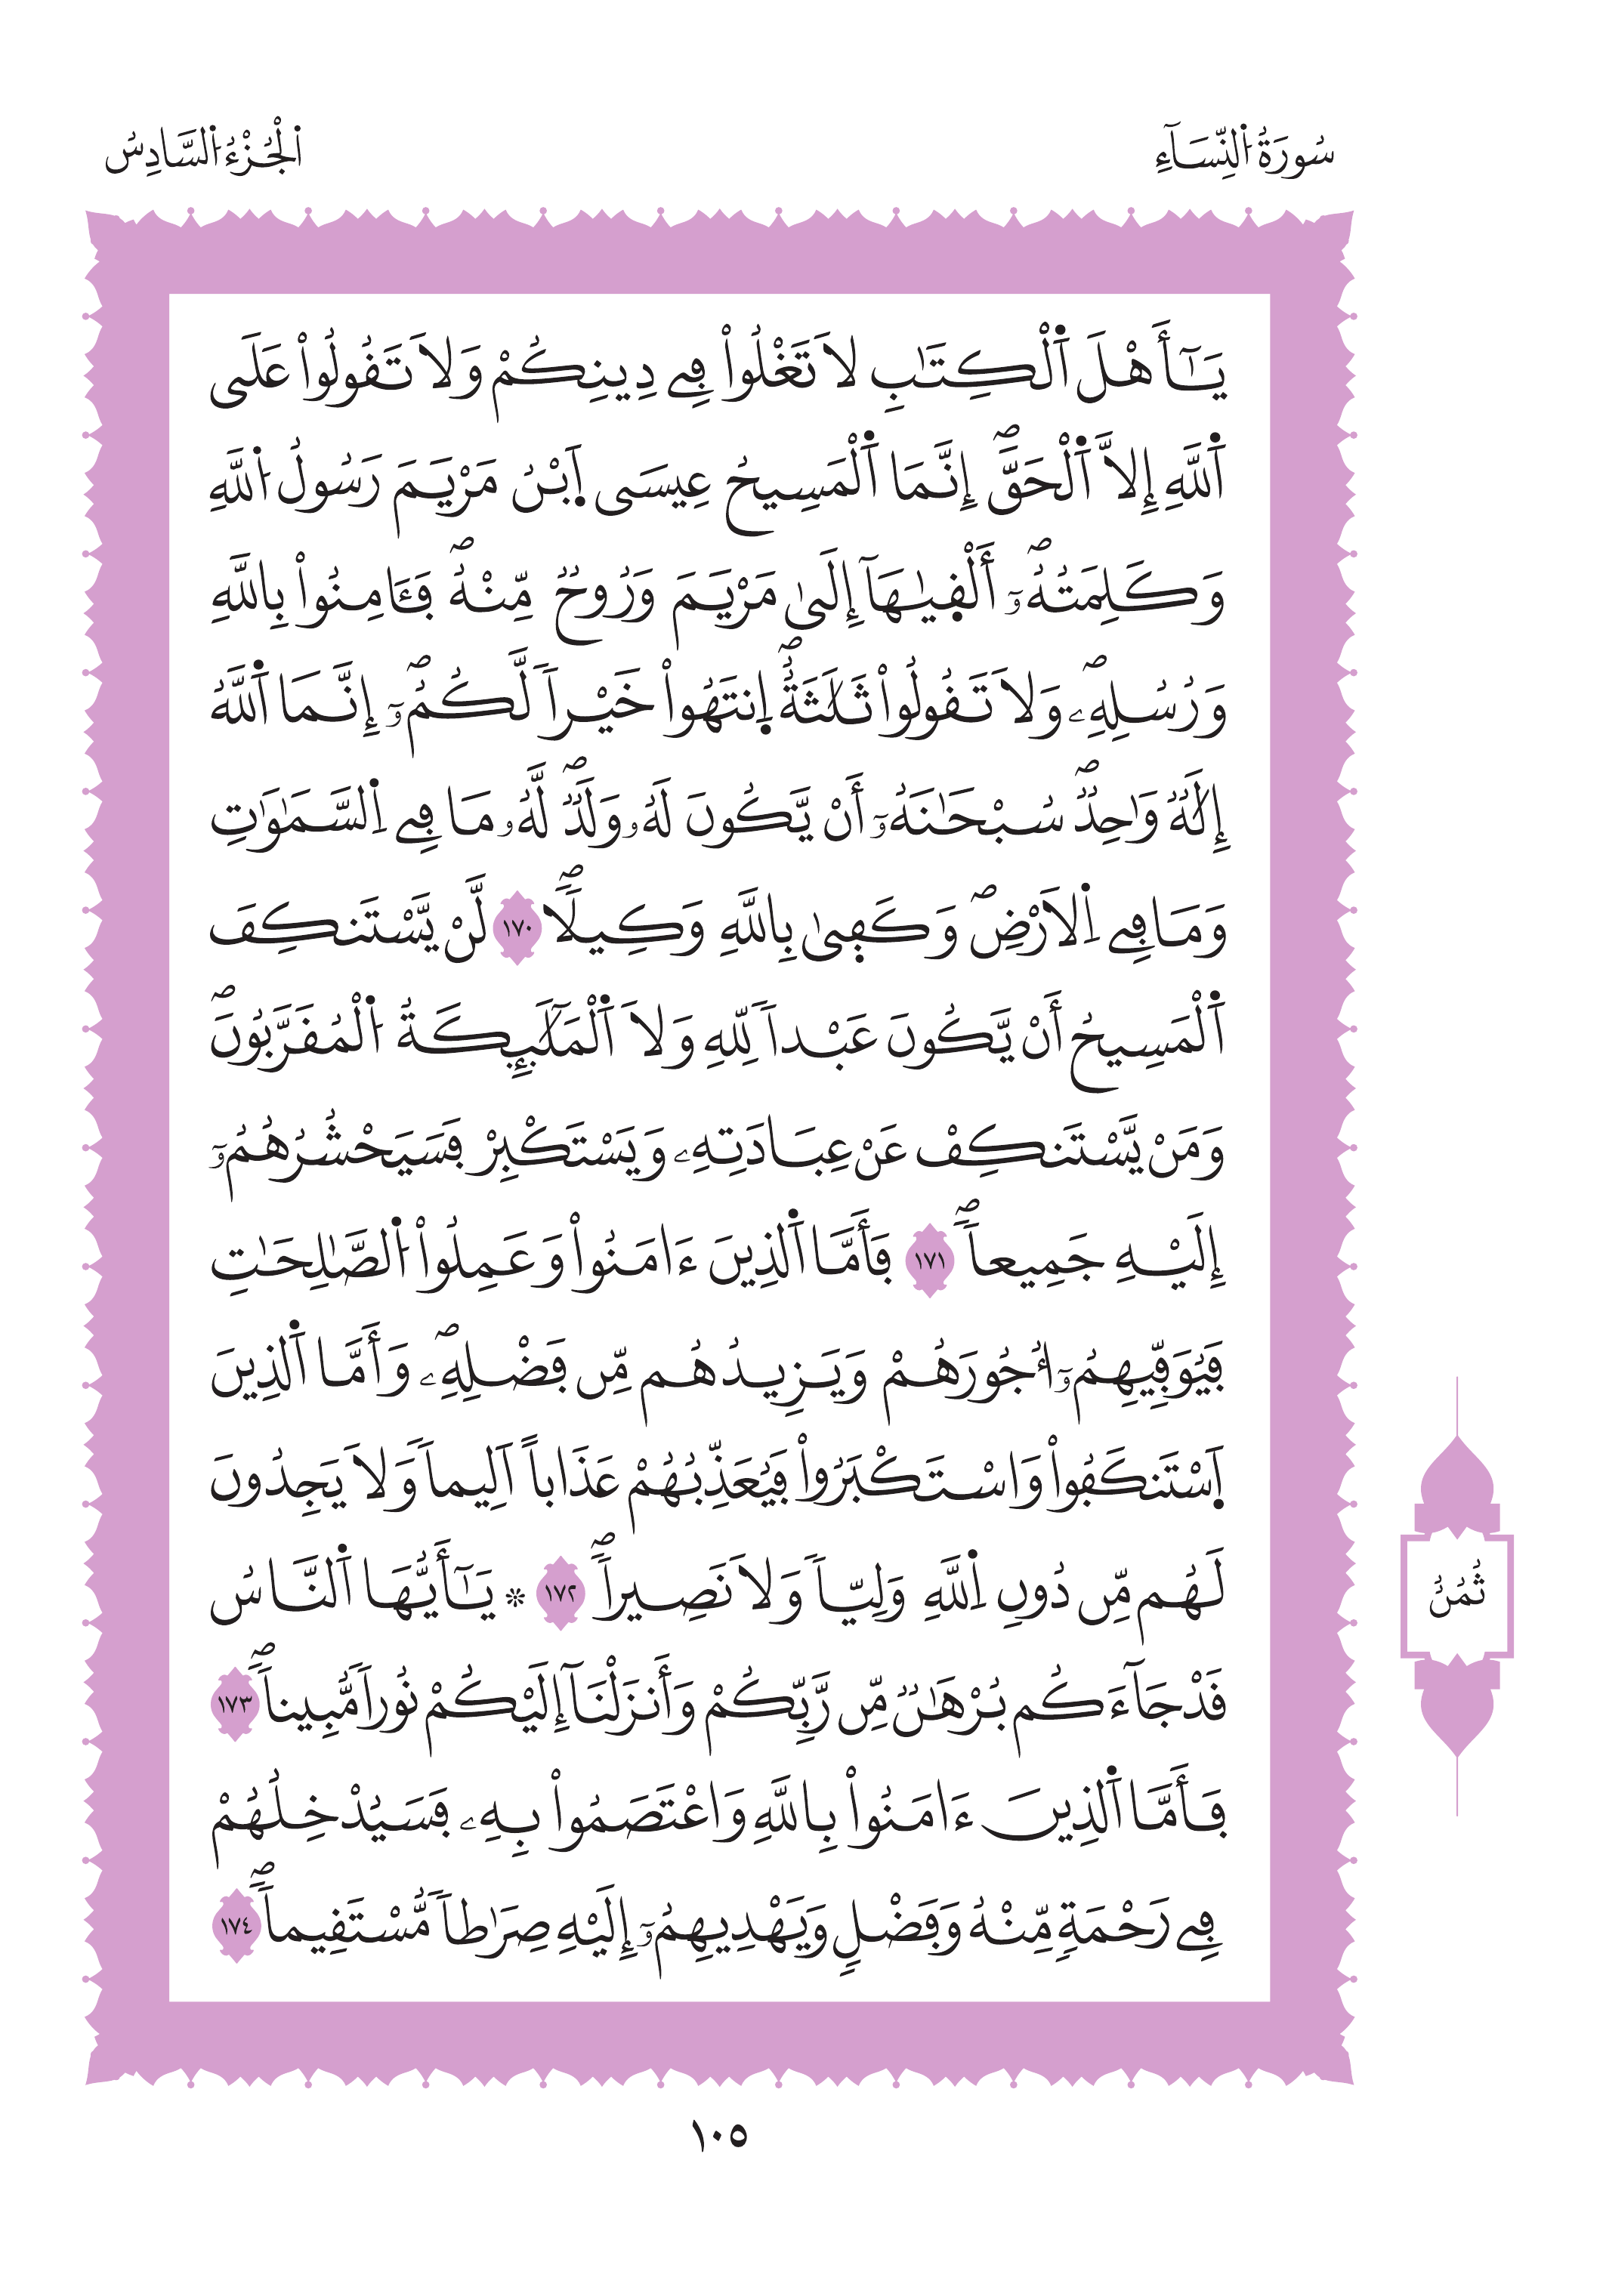 سُورَةُ اُ۬لنِّسَآءِ
اَ۬لْجُزْءُ اُ۬لسَّادِسُ
يَٰٓأَهْلَ اَ۬لْكِتَٰبِ لَا تَغْلُواْ فِے دِينِكُمْ وَلَا تَقُولُواْ عَلَي
اَ۬للَّهِ إِلَّا اَ۬لْحَقَّۖ إِنَّمَا اَ۬لْمَسِيحُ عِيسَي اَ۪بْنُ مَرْيَمَ رَسُولُ اُ۬للَّهِ
وَكَلِمَتُهُۥٓۖ أَلْق۪يٰهَآ إِلَىٰ مَرْيَمَ وَرُوحٞ مِّنْهُۖ فَـَٔامِنُواْ بِاللَّهِ
وَرُسُلِهِۦۖ وَلَا تَقُولُواْ ثَلَٰثَةٌۖ اِ۪نتَهُواْ خَيْراٗ لَّكُمُۥٓۖ إِنَّمَا اَ۬للَّهُ
إِلَٰهٞ وَٰحِدٞۖ سُبْحَٰنَهُۥٓ أَنْ يَّكُونَ لَهُۥ وَلَدٞۖ لَّهُۥ مَا فِے اِ۬لسَّمَٰوَٰتِ
وَمَا فِے اِ۬لَارْضِۖ وَكَف۪ىٰ بِاللَّهِ وَكِيلاٗۖ ١٧٠ لَّنْ يَّسْتَنكِفَ
اَ۬لْمَسِيحُ أَنْ يَّكُونَ عَبْداٗ لِّلهِ وَلَا اَ۬لْمَلَٰٓئِكَةُ اُ۬لْمُقَرَّبُونَۖ
وَمَنْ يَّسْتَنكِفْ عَنْ عِبَادَتِهِۦ وَيَسْتَكْبِرْ فَسَيَحْشُرُهُمُۥٓ
إِلَيْهِ جَمِيعاٗۖ ١٧١ فَأَمَّا اَ۬لذِينَ ءَامَنُواْ وَعَمِلُواْ اُ۬لصَّٰلِحَٰتِ
فَيُوَفِّيهِمُۥٓ أُجُورَهُمْ وَيَزِيدُهُم مِّن فَضْلِهِۦۖ وَأَمَّا اَ۬لذِينَ
اَ۪سْتَنكَفُواْ وَاسْتَكْبَرُواْ فَيُعَذِّبُهُمْ عَذَاباً اَلِيماٗ وَلَا يَجِدُونَ
لَهُم مِّن دُونِ اِ۬للَّهِ وَلِيّاٗ وَلَا نَصِيراٗۖ ١٧٢ ۞ يَٰٓأَيُّهَا اَ۬لنَّاسُ
قَدْ جَآءَكُم بُرْهَٰنٞ مِّن رَّبِّكُمْ وَأَنزَلْنَآ إِلَيْكُمْ نُوراٗ مُّبِيناٗۖ ١٧٣
فَأَمَّا اَ۬لذِينَ ءَامَنُواْ بِاللَّهِ وَاعْتَصَمُواْ بِهِۦ فَسَيُدْخِلُهُمْ
فِے رَحْمَةٖ مِّنْهُ وَفَضْلٖ وَيَهْدِيهِمُۥٓ إِلَيْهِ صِرَٰطاٗ مُّسْتَقِيماٗۖ ١٧٤
ثُمُنٌ
١٠٥